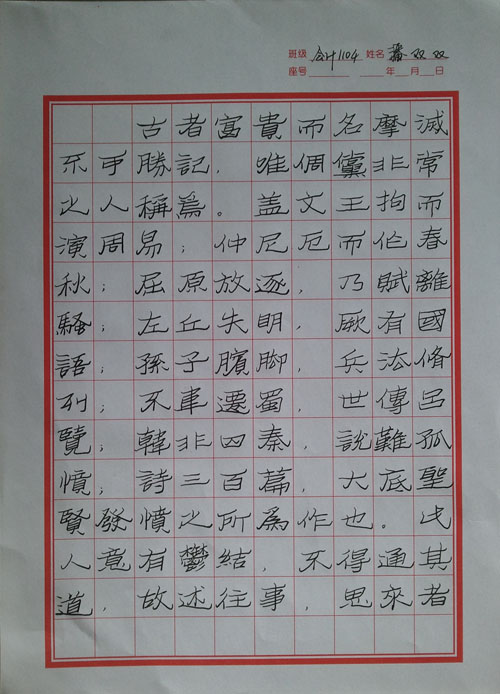 班级 会计1104 姓名 双双
座号 年 月 日
古者富貴而名摩滅
不可勝記，唯倜儻非常
之人稱爲。盖文王拘而
演周易；仲尼厄而作春
秋；屈原放逐，乃賦離
騷；左丘失明，厥有國
語；孫子臏脚，兵法脩
列；不韋遷蜀，世傳呂
覽；韓非囚秦，說難孤
憤；詩三百篇，大底聖
賢發憤之所爲作也。此
人意有鬱結，不得通其
道，故述往事，思來者